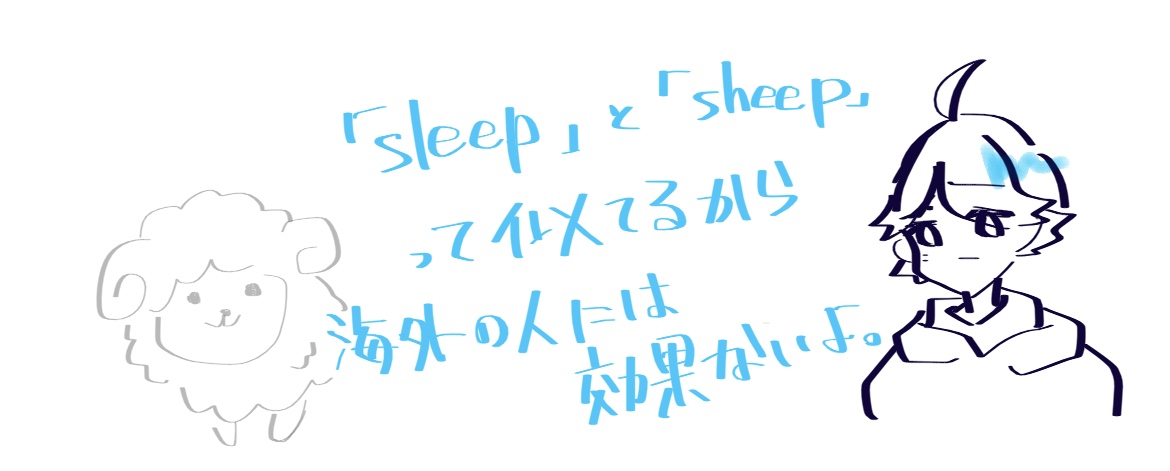 「sleep」と「sheep」
って似てるから
海外の人には
効果ないよ。